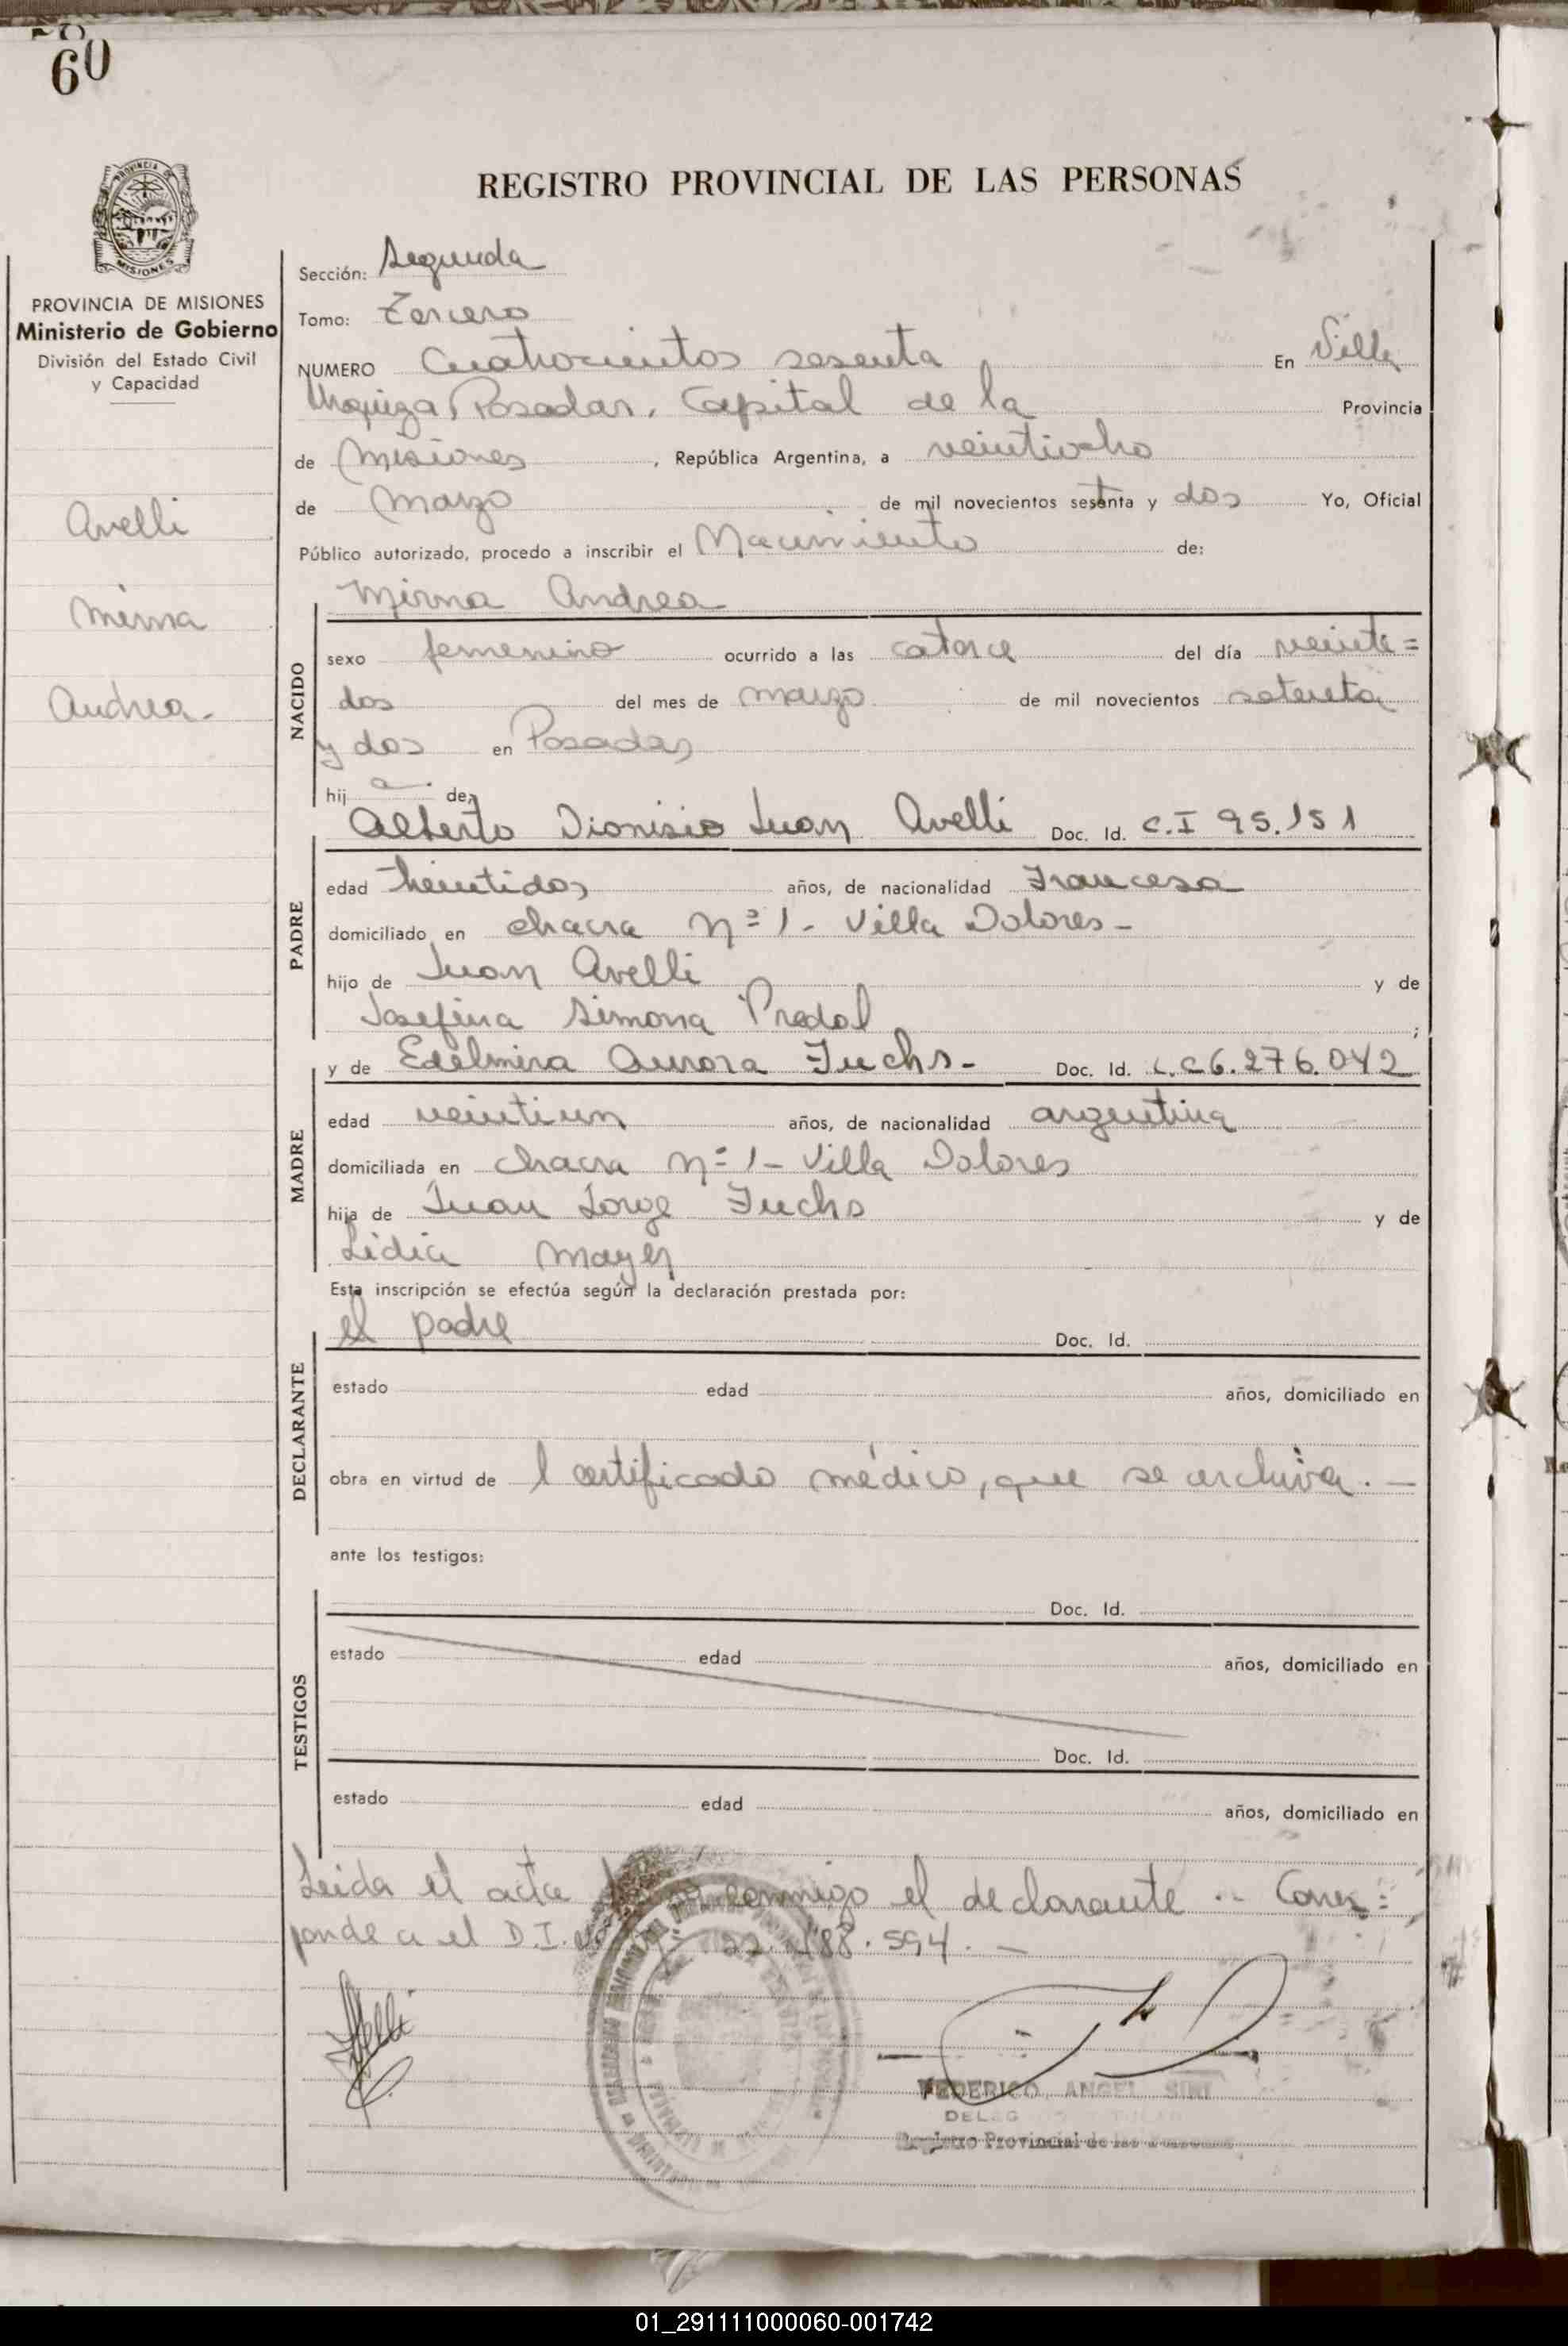 60
REGISTRO PROVINCIAL DE LAS PERSONAS
PROVINCIA DE MISIONES
Ministerio de Gobierno
División del Estado Civil
y Capacidad
Avelli
Mirna
Andrea.-
Sección: Segunda
Tomo: Tercero
NUMERO Cuatrocientos sesenta En Villa
Urquiza, Posadas, Capital de la Provincia
de Misiones, República Argentina, a veintiocho
de Marzo de mil novecientos setenta y dos Yo, Oficial
Público autorizado, procedo a inscribir el Nacimiento de:
Mirna Andrea
NACIDO
sexo femenino ocurrido a las catorce del día veinte=
dos del mes de marzo de mil novecientos setenta
y dos en Posadas
hij a. de,
Alberto Dionisio Juan Avelli Doc. Id. C.I 95.151
PADRE
edad treintidos años, de nacionalidad Francesa
domiciliado en chacra Nº 1- Villa Dolores-
hijo de Juan Avelli y de
Josefina Simona Predal;
y de Edelmira Aurora Fuchs- Doc. Id. L.C 6.276.042
MADRE
edad veintiun años, de nacionalidad argentina
domiciliada en chacra Nº 1- Villa Dolores
hija de Juan Jorge Fuchs y de
Lidia Mayer
Esta inscripción se efectúa según la declaración prestada por:
el padre Doc. Id.
DECLARANTE
estado edad años, domiciliado en
obra en virtud de l certificado médico, que se archiva.-
ante los testigos:
Doc. Id.
TESTIGOS
estado edad años, domiciliado en
Doc. Id.
estado edad años, domiciliado en
Leida el acta conmigo el declarante.- Corres=
ponde a el D.I. 22.188.594.-
FEDERICO ANGEL SIRI
Registro Provincial de las Personas
01_291111000060-001742